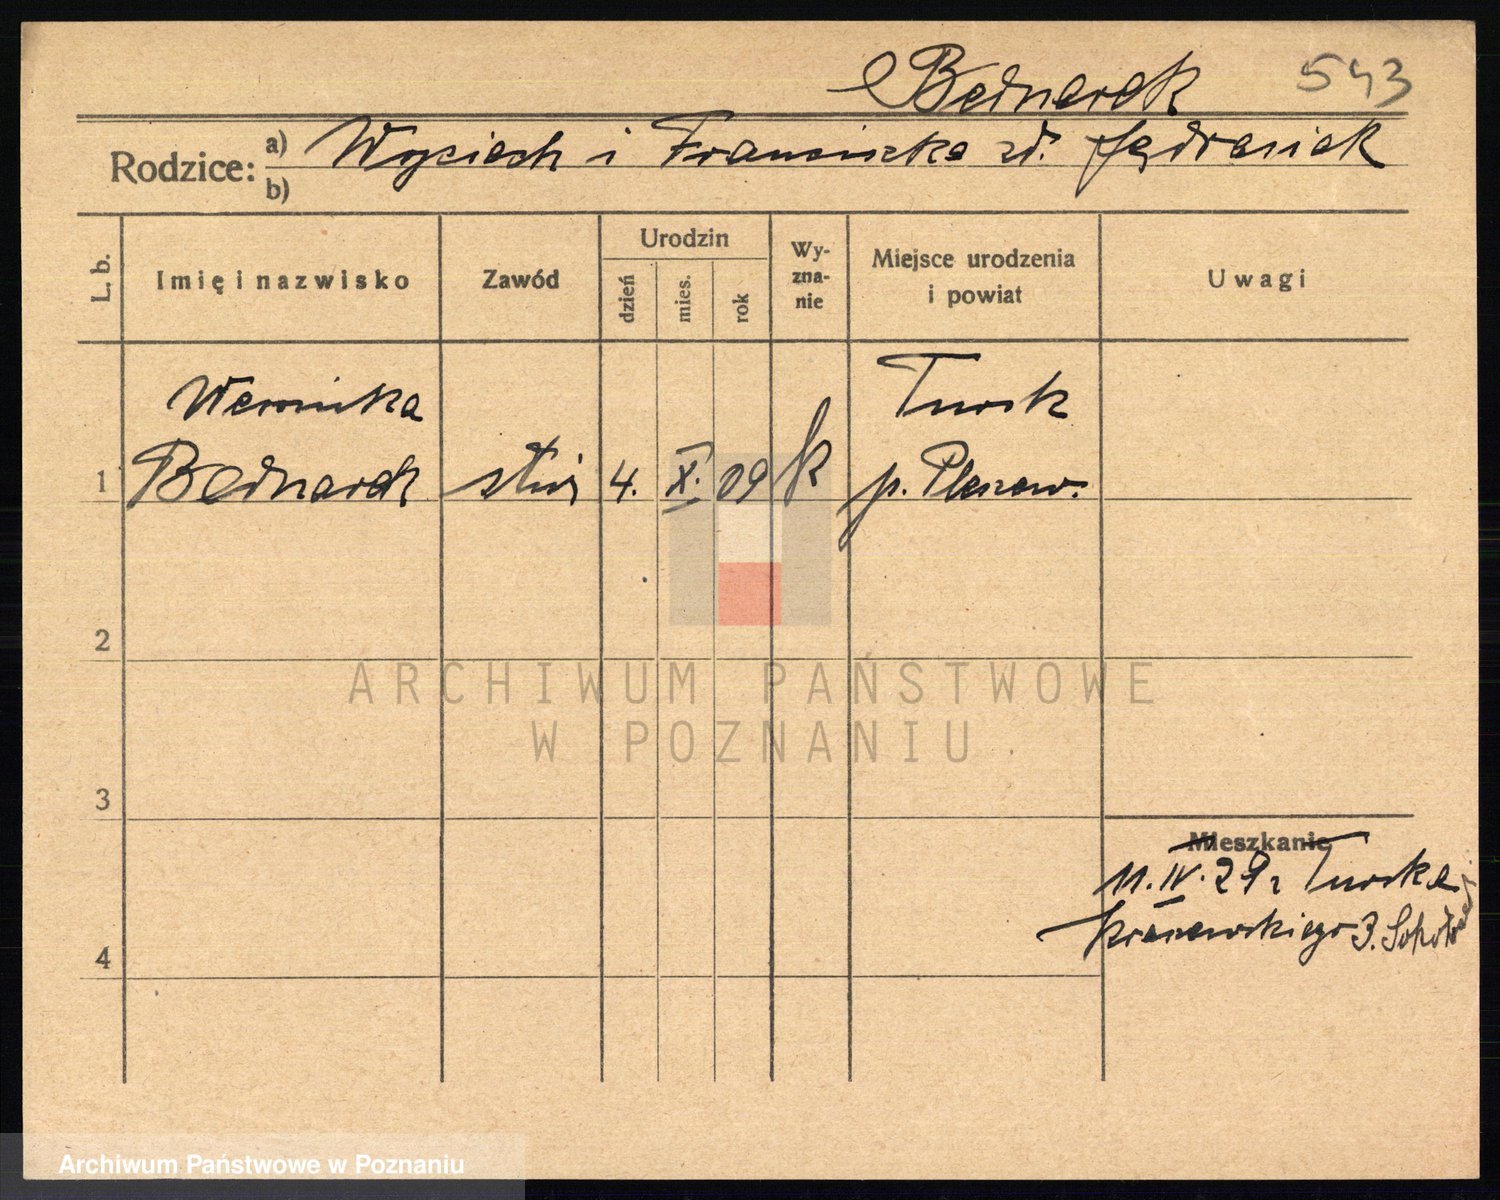 Bednarek 543
Rodzice: a) Wojciech i Franciszka zd. Jędrasiak
b)
L. b. Imię i nazwisko Zawód Urodzin dzień mies. rok Wy-zna-nie Miejsce urodzenia i powiat Uwagi
Weronika Tursk
1 Bednarek służ 4. X. 09 k p. Pleszew.
2
ARCHIWUM PAŃSTWOWE
W POZNANIU
3
Mieszkanie
11.IV.29 z Turska
4 Kraszewskiego 3.
Archiwum Państwowe w Poznaniu